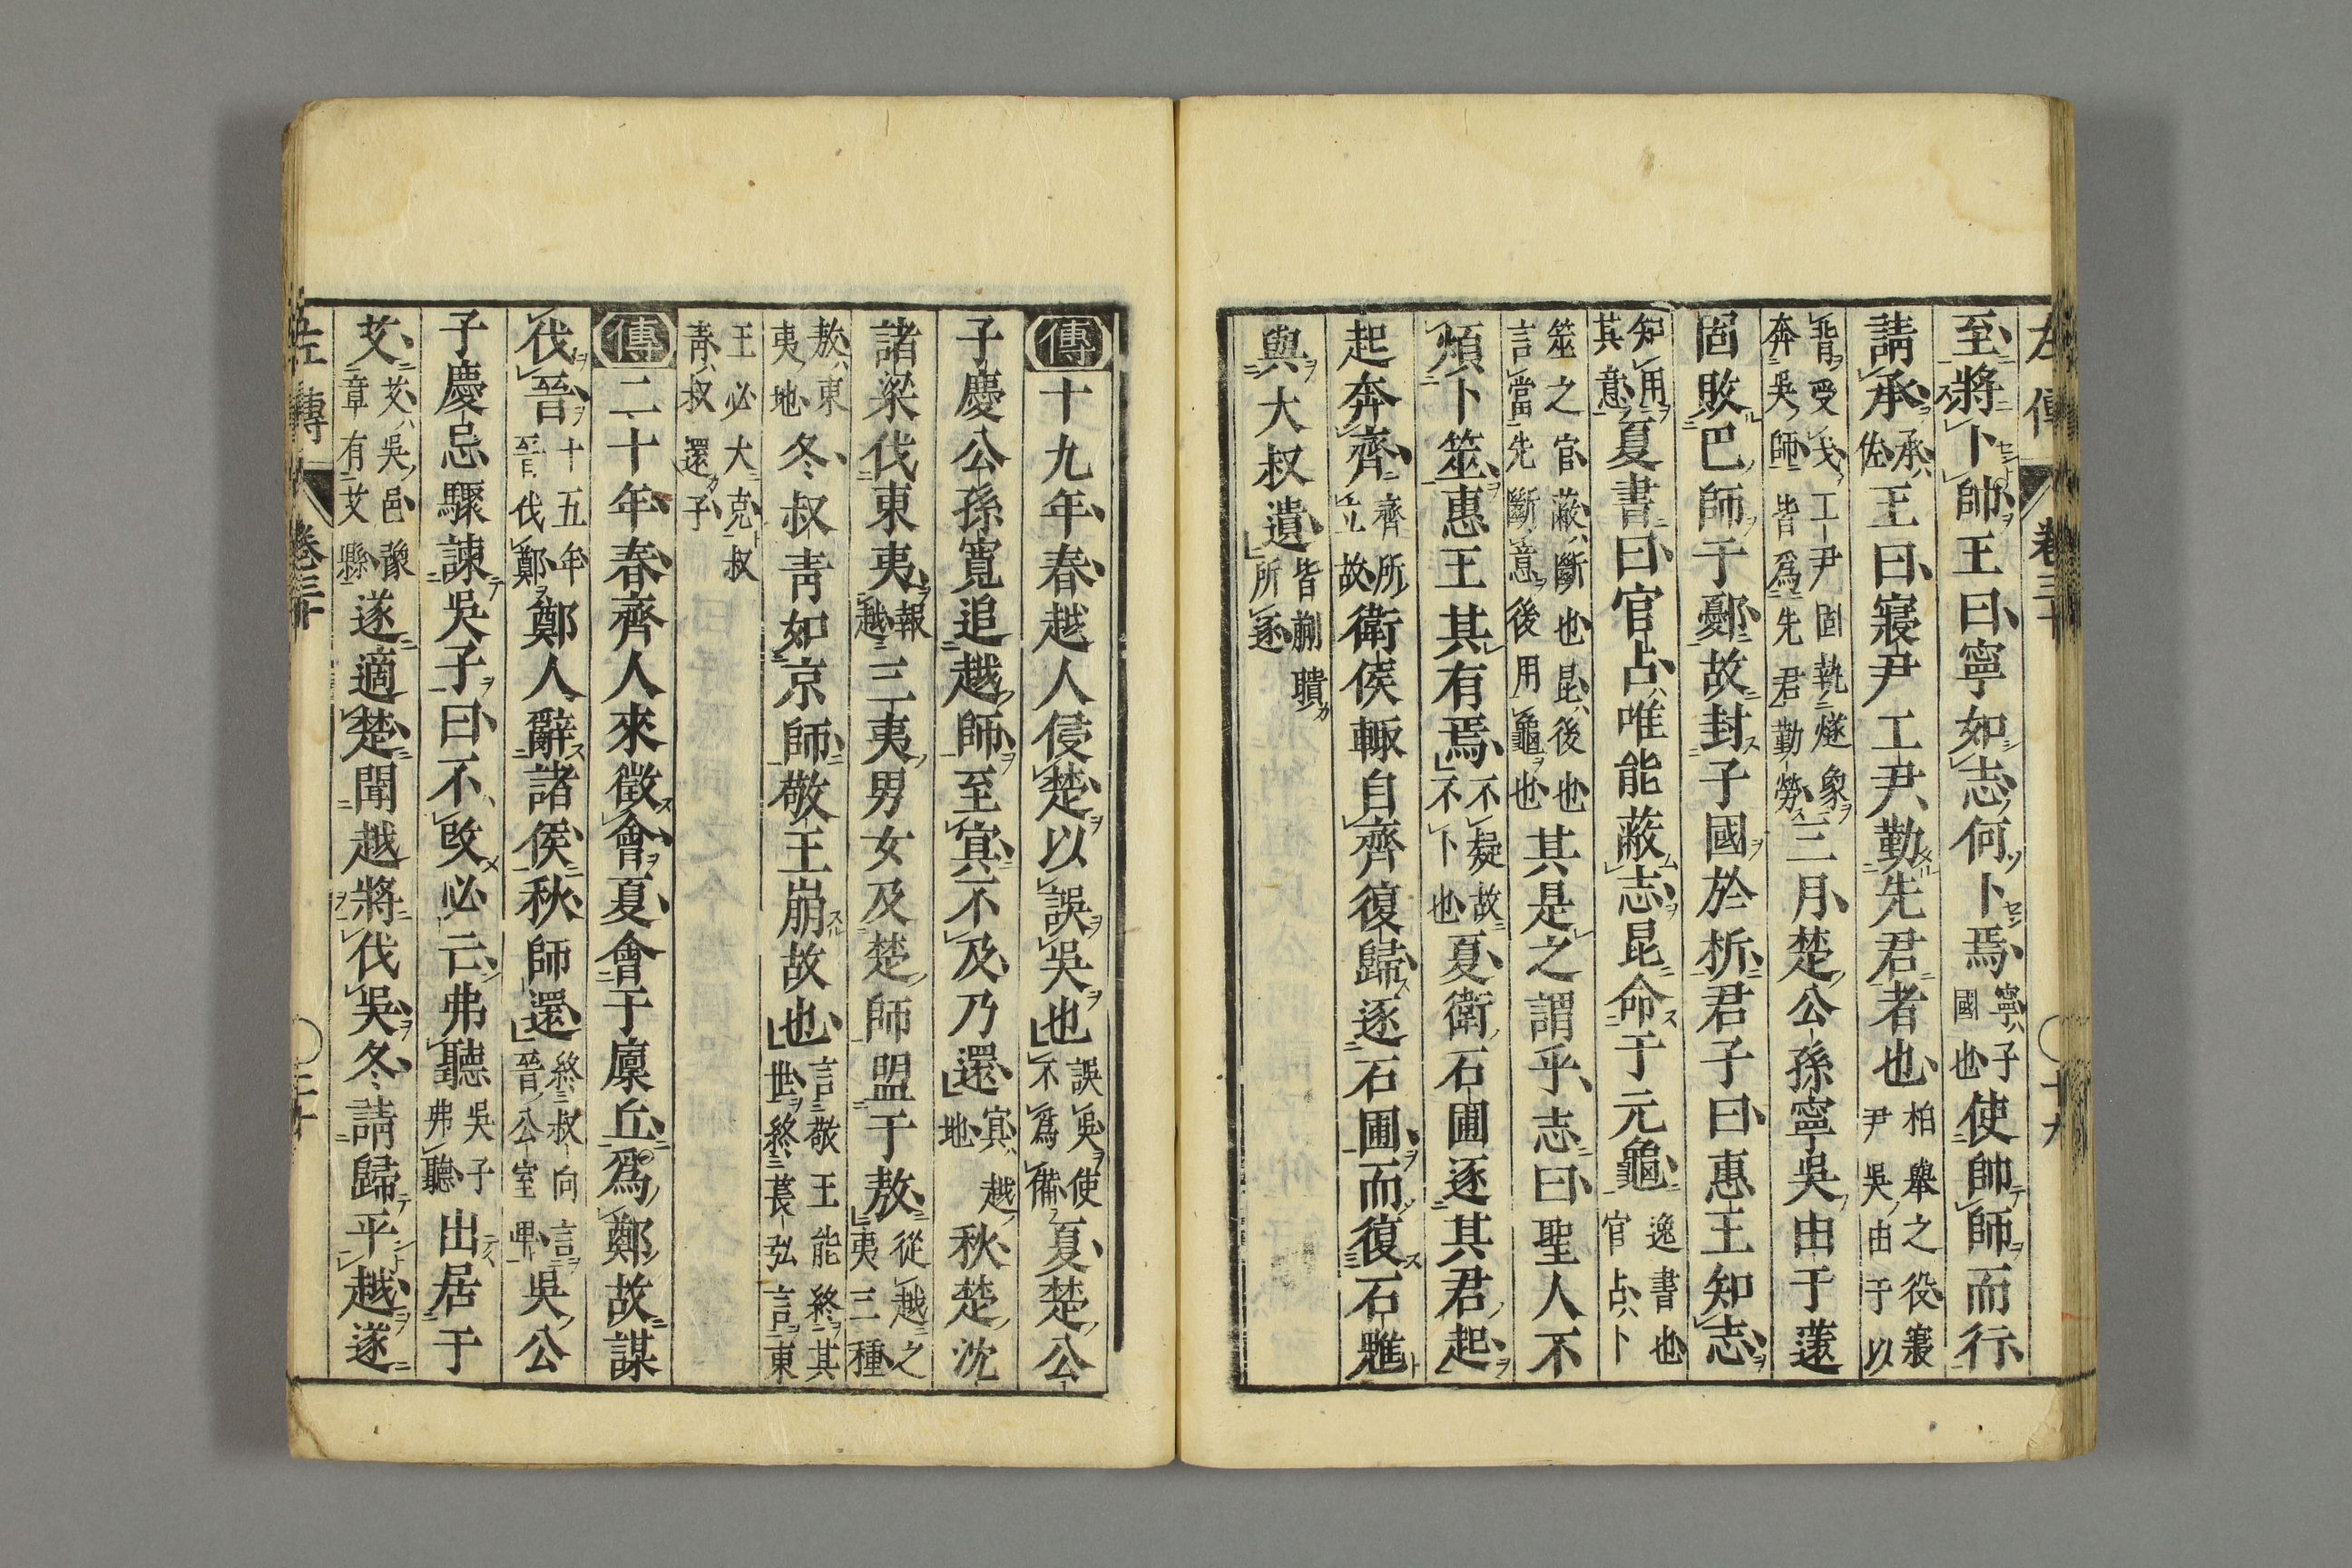 左傳 卷三十 十九
至將卜帥王曰寧如志何卜焉寧子國也使帥師而行
請承承佐王曰寢尹工尹勤先君者也柏舉之役寢尹吳由于以
背受戈工尹固執燧象奔吳師皆爲先君勤勞三月楚公孫寧吳由于薳
固敗巴師于鄾故封子國於析君子曰惠王知志
知用其意夏書曰官占唯能蔽志昆命于元龜逸書也官占卜
筮之官蔽斷也昆後也言當先斷意後用龜也其是之謂乎志曰聖人不
煩卜筮惠王其有焉不疑故不卜也夏衛石圃逐其君起
起奔齊齊所立故衛侯輒自齊復歸逐石圃而復石魋
與大叔遺皆蒯聵所逐
傳十九年春越人侵楚以誤吳也誤吳使不爲備夏楚公
子慶公孫寬追越師至冥不及乃還冥越地秋楚沈
諸梁伐東夷報越三夷男女及楚師盟于敖從越之夷三種
敖東夷地冬叔青如京師敬王崩故也言敬王能終其世終萇弘言東
王必大克叔青叔還子
傳二十年春齊人來徵會夏會于廩丘爲鄭故謀
伐晉十五年晉伐鄭鄭人辭諸侯秋師還終叔向言晉公室卑吳公
子慶忌驟諫吳子曰不改必亡弗聽吳子弗聽出居于
艾艾吳邑豫章有艾縣遂適楚聞越將伐吳冬請歸平越遂
左傳 卷三十 二十